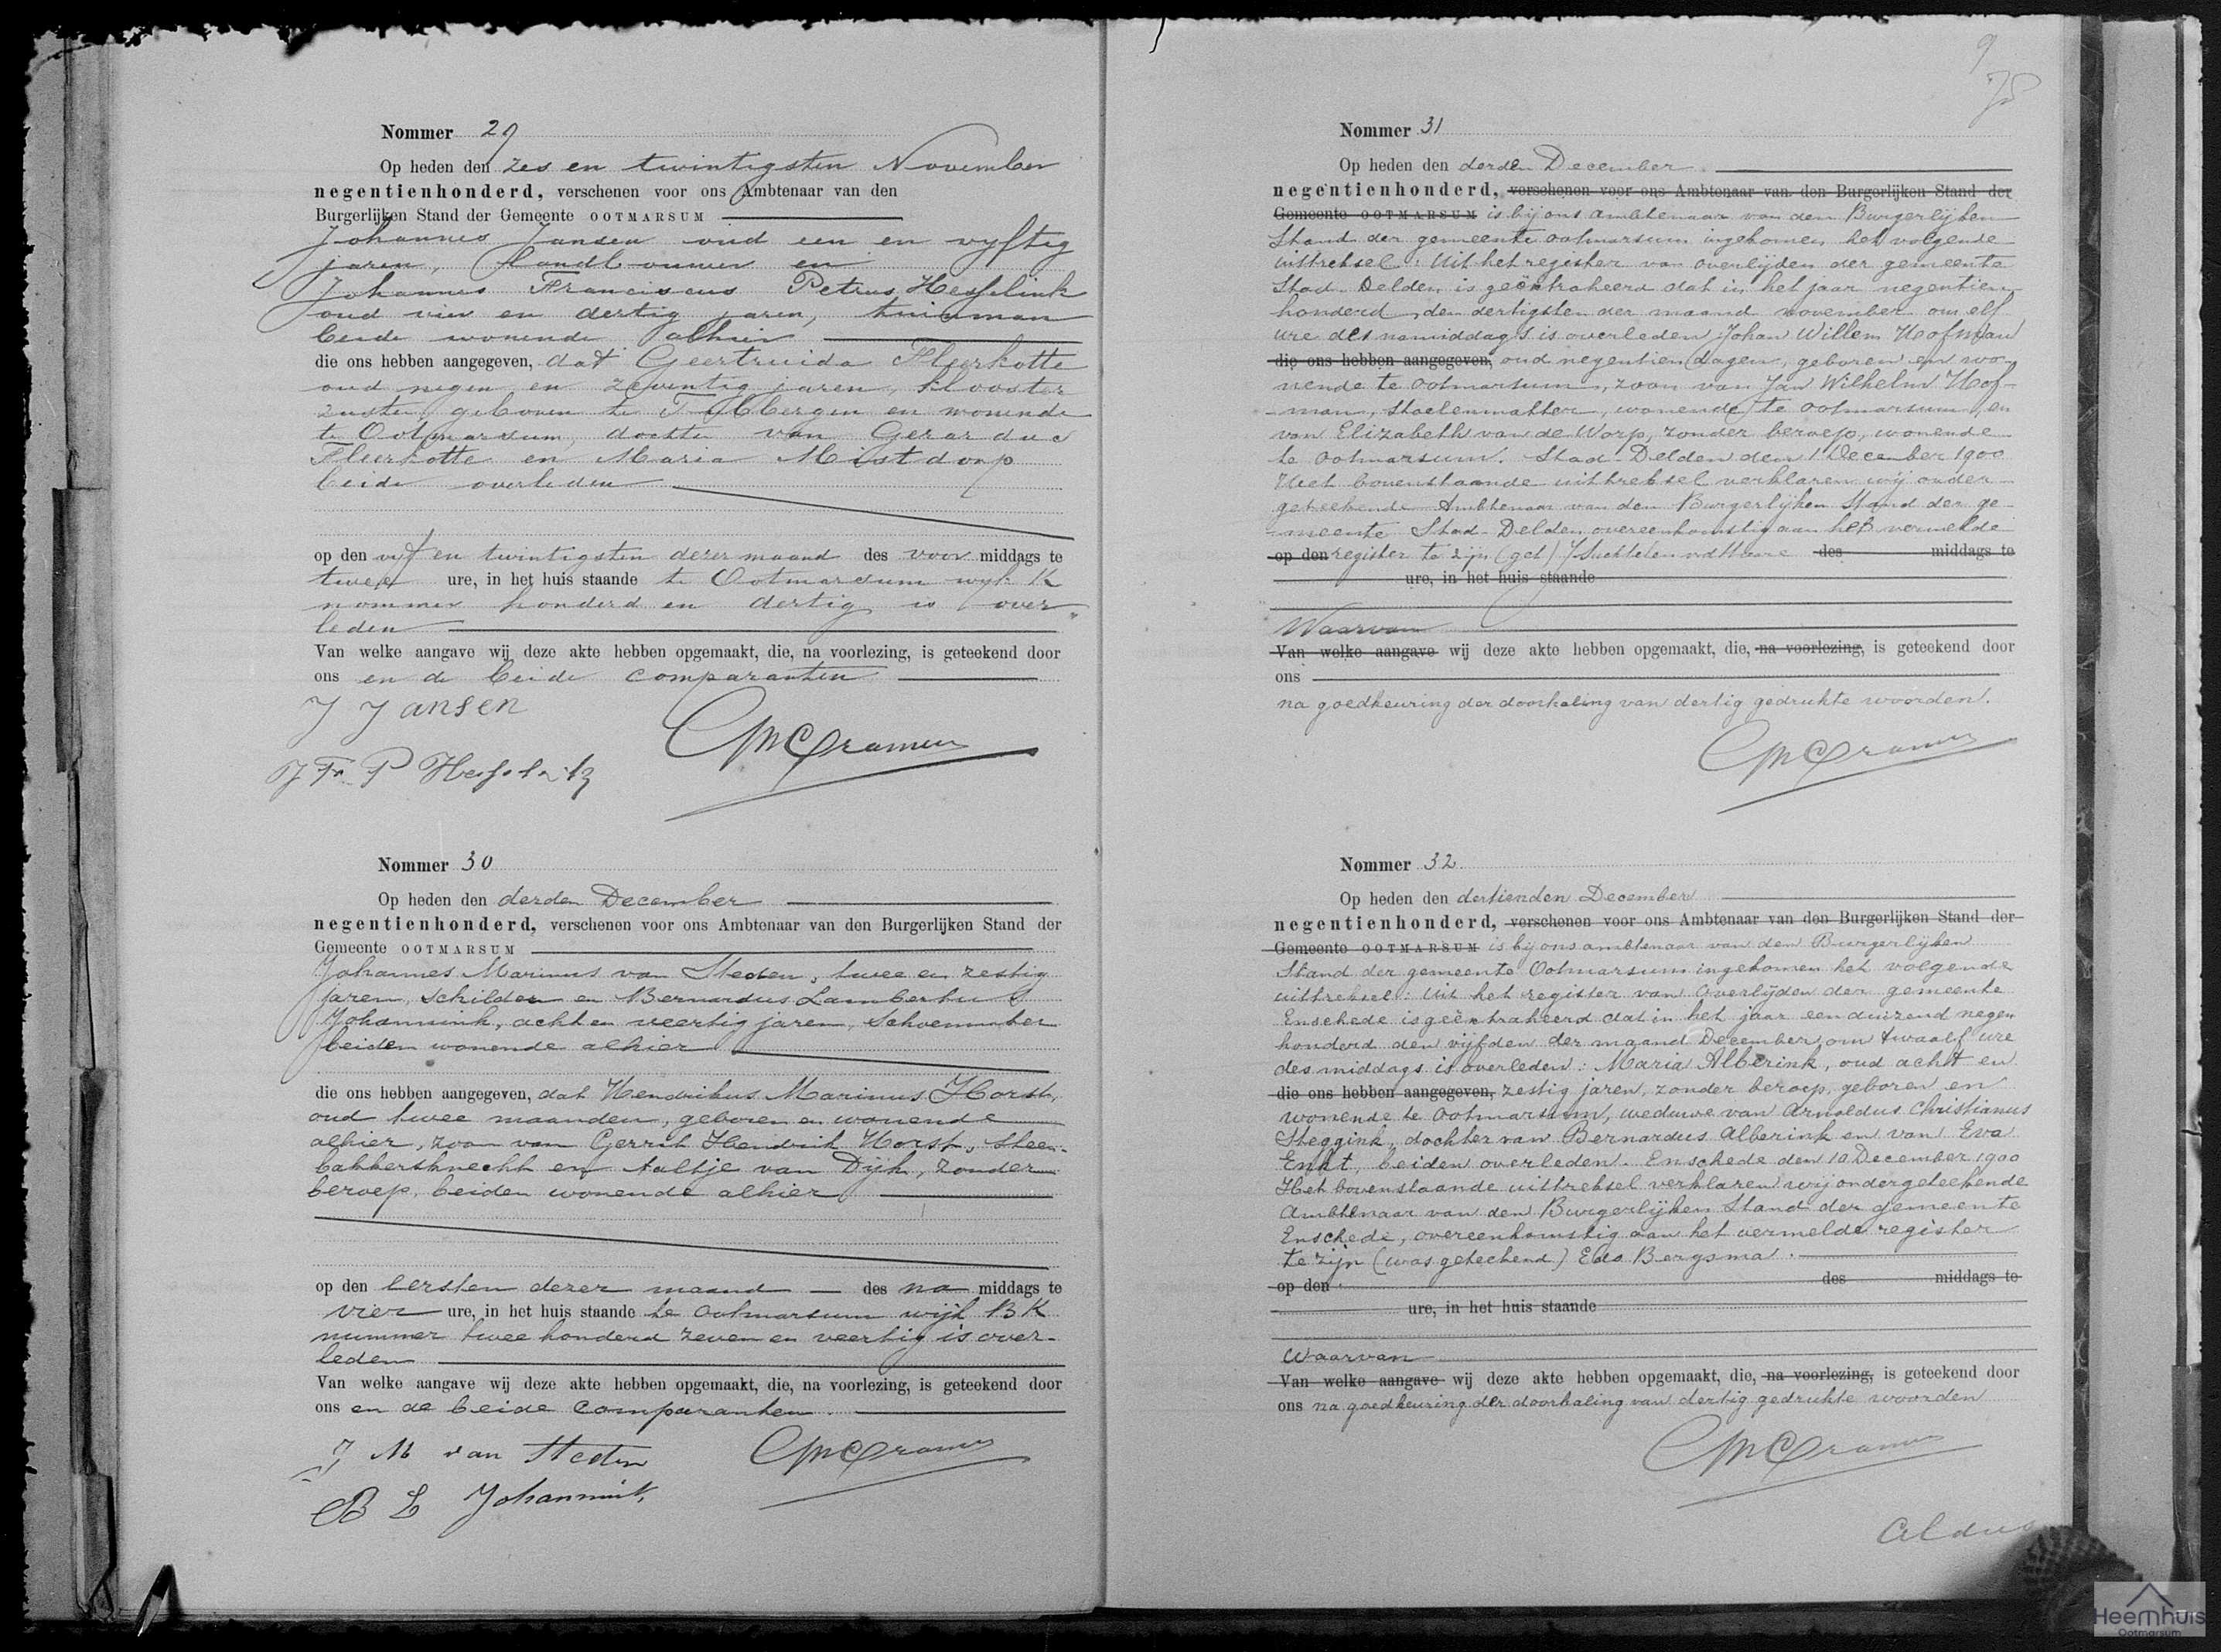 Nommer 29
Op heden den zes en twintigsten November
negentienhonderd, verschenen voor ons Ambtenaar van den
Burgerlijken Stand der Gemeente OOTMARSUM
Johannes Jansen oud een en vyftig
jaren, Landbouwer en
Johannes Franciscus Petrus Hesselink
oud vier en dertig jaren, tuinman
beide wonende alhier
die ons hebben aangegeven, dat Geertruida Fleerkotte
oud negen en zeventig jaren, klooster
zuster, geboren te Tubbergen en wonende
te Ootmarsum, dochter van Gerardus
Fleerkotte en Maria Mistdorp
beide overleden
op den vijf en twintigsten dezer maand des voor middags te
twee ure, in het huis staande te Ootmarsum wyk K
nommer honderd en dertig is over
leden
Van welke aangave wij deze akte hebben opgemaakt, die, na voorlezing, is geteekend door
ons en de beide comparanten
J Jansen
J Fr P Hesselink
Cramer
Nommer 30
Op heden den derden December
negentienhonderd, verschenen voor ons Ambtenaar van den Burgerlijken Stand der
Gemeente OOTMARSUM
Johannes Marinus van Steden, twee en zestig
jaren, schilder en Bernardus Lambertus
Johannink, acht en veertig jaren, Schoenmaker
beiden wonende alhier
die ons hebben aangegeven, dat Hendrikus Marinus Horst,
oud twee maanden, geboren en wonende
alhier, zoon van Gerrit Hendrik Horst, steen-
bakkersknecht en Aaltje van Dijk, zonder
beroep, beiden wonende alhier
op den eersten dezer maand des na middags te
vier ure, in het huis staande te Ootmarsum wijk BK
nummer twee honderd zeven en veertig is over-
leden
Van welke aangave wij deze akte hebben opgemaakt, die, na voorlezing, is geteekend door
ons en de beide comparanten.
J M van Steden
Cramer
B L Johannink,
9
75
Nommer 31
Op heden den derden December
negentienhonderd, verschenen voor ons Ambtenaar van den Burgerlijken Stand der
Gemeente OOTMARSUM is bij ons ambtenaar van den Burgerlijken
Stand der gemeente Ootmarsum ingekomen het volgende
uittreksel: Uit het register van overlijden der gemeente
Stad-Delden is geëxtraheerd dat in het jaar negentien-
honderd, den dertigsten der maand november om elf
ure des namiddags is overleden: Johan Willem Hofman
die ons hebben aangegeven, oud negentien dagen, geboren en wo-
nende te Ootmarsum, zoon van Jan Wilhelm Hof-
man, stoelenmatter, wonende te Ootmarsum, en
van Elizabeth van de Worp, zonder beroep, wonende
te Ootmarsum. Stad-Delden den 1 December 1900
Het bovenstaande uittreksel verklaren wij onder-
geteekende Ambtenaar van den Burgerlijken Stand der ge-
meente Stad-Delden, overeenkomstig aan het vermelde
op den register te zijn (get) des middags te
ure, in het huis staande
Waarvan
Van welke aangave wij deze akte hebben opgemaakt, die, na voorlezing, is geteekend door
ons
na goedkeuring der doorhaling van dertig gedrukte woorden.
Cramer
Nommer 32
Op heden den dertienden December
negentienhonderd, verschenen voor ons Ambtenaar van den Burgerlijken Stand der
Gemeente OOTMARSUM is bij ons ambtenaar van den Burgerlijken
Stand der gemeente Ootmarsum ingekomen het volgende
uittreksel: Uit het register van overlijden der gemeente
Enschede is geëxtraheerd dat in het jaar een duizend negen
honderd den vijfden der maand December, om twaalf ure
des middags is overleden: Maria Alberink, oud acht en
die ons hebben aangegeven, zestig jaren, zonder beroep, geboren en
wonende te Ootmarsum, weduwe van Arnoldus Christianus
Steggink, dochter van Bernardus Alberink en van Eva
Enkt, beiden overleden. Enschede den 10 December 1900
Het bovenstaande uittreksel verklaren wij ondergeteekende
Ambtenaar van den Burgerlijken Stand der gemeente
Enschede, overeenkomstig aan het vermelde register
te zijn (was geteekend) Edo Bergsma.
op den des middags te
ure, in het huis staande
Waarvan
Van welke aangave wij deze akte hebben opgemaakt, die, na voorlezing, is geteekend door
ons na goedkeuring der doorhaling van dertig gedrukte woorden
Cramer
Aldus
Heemhuis
Ootmarsum